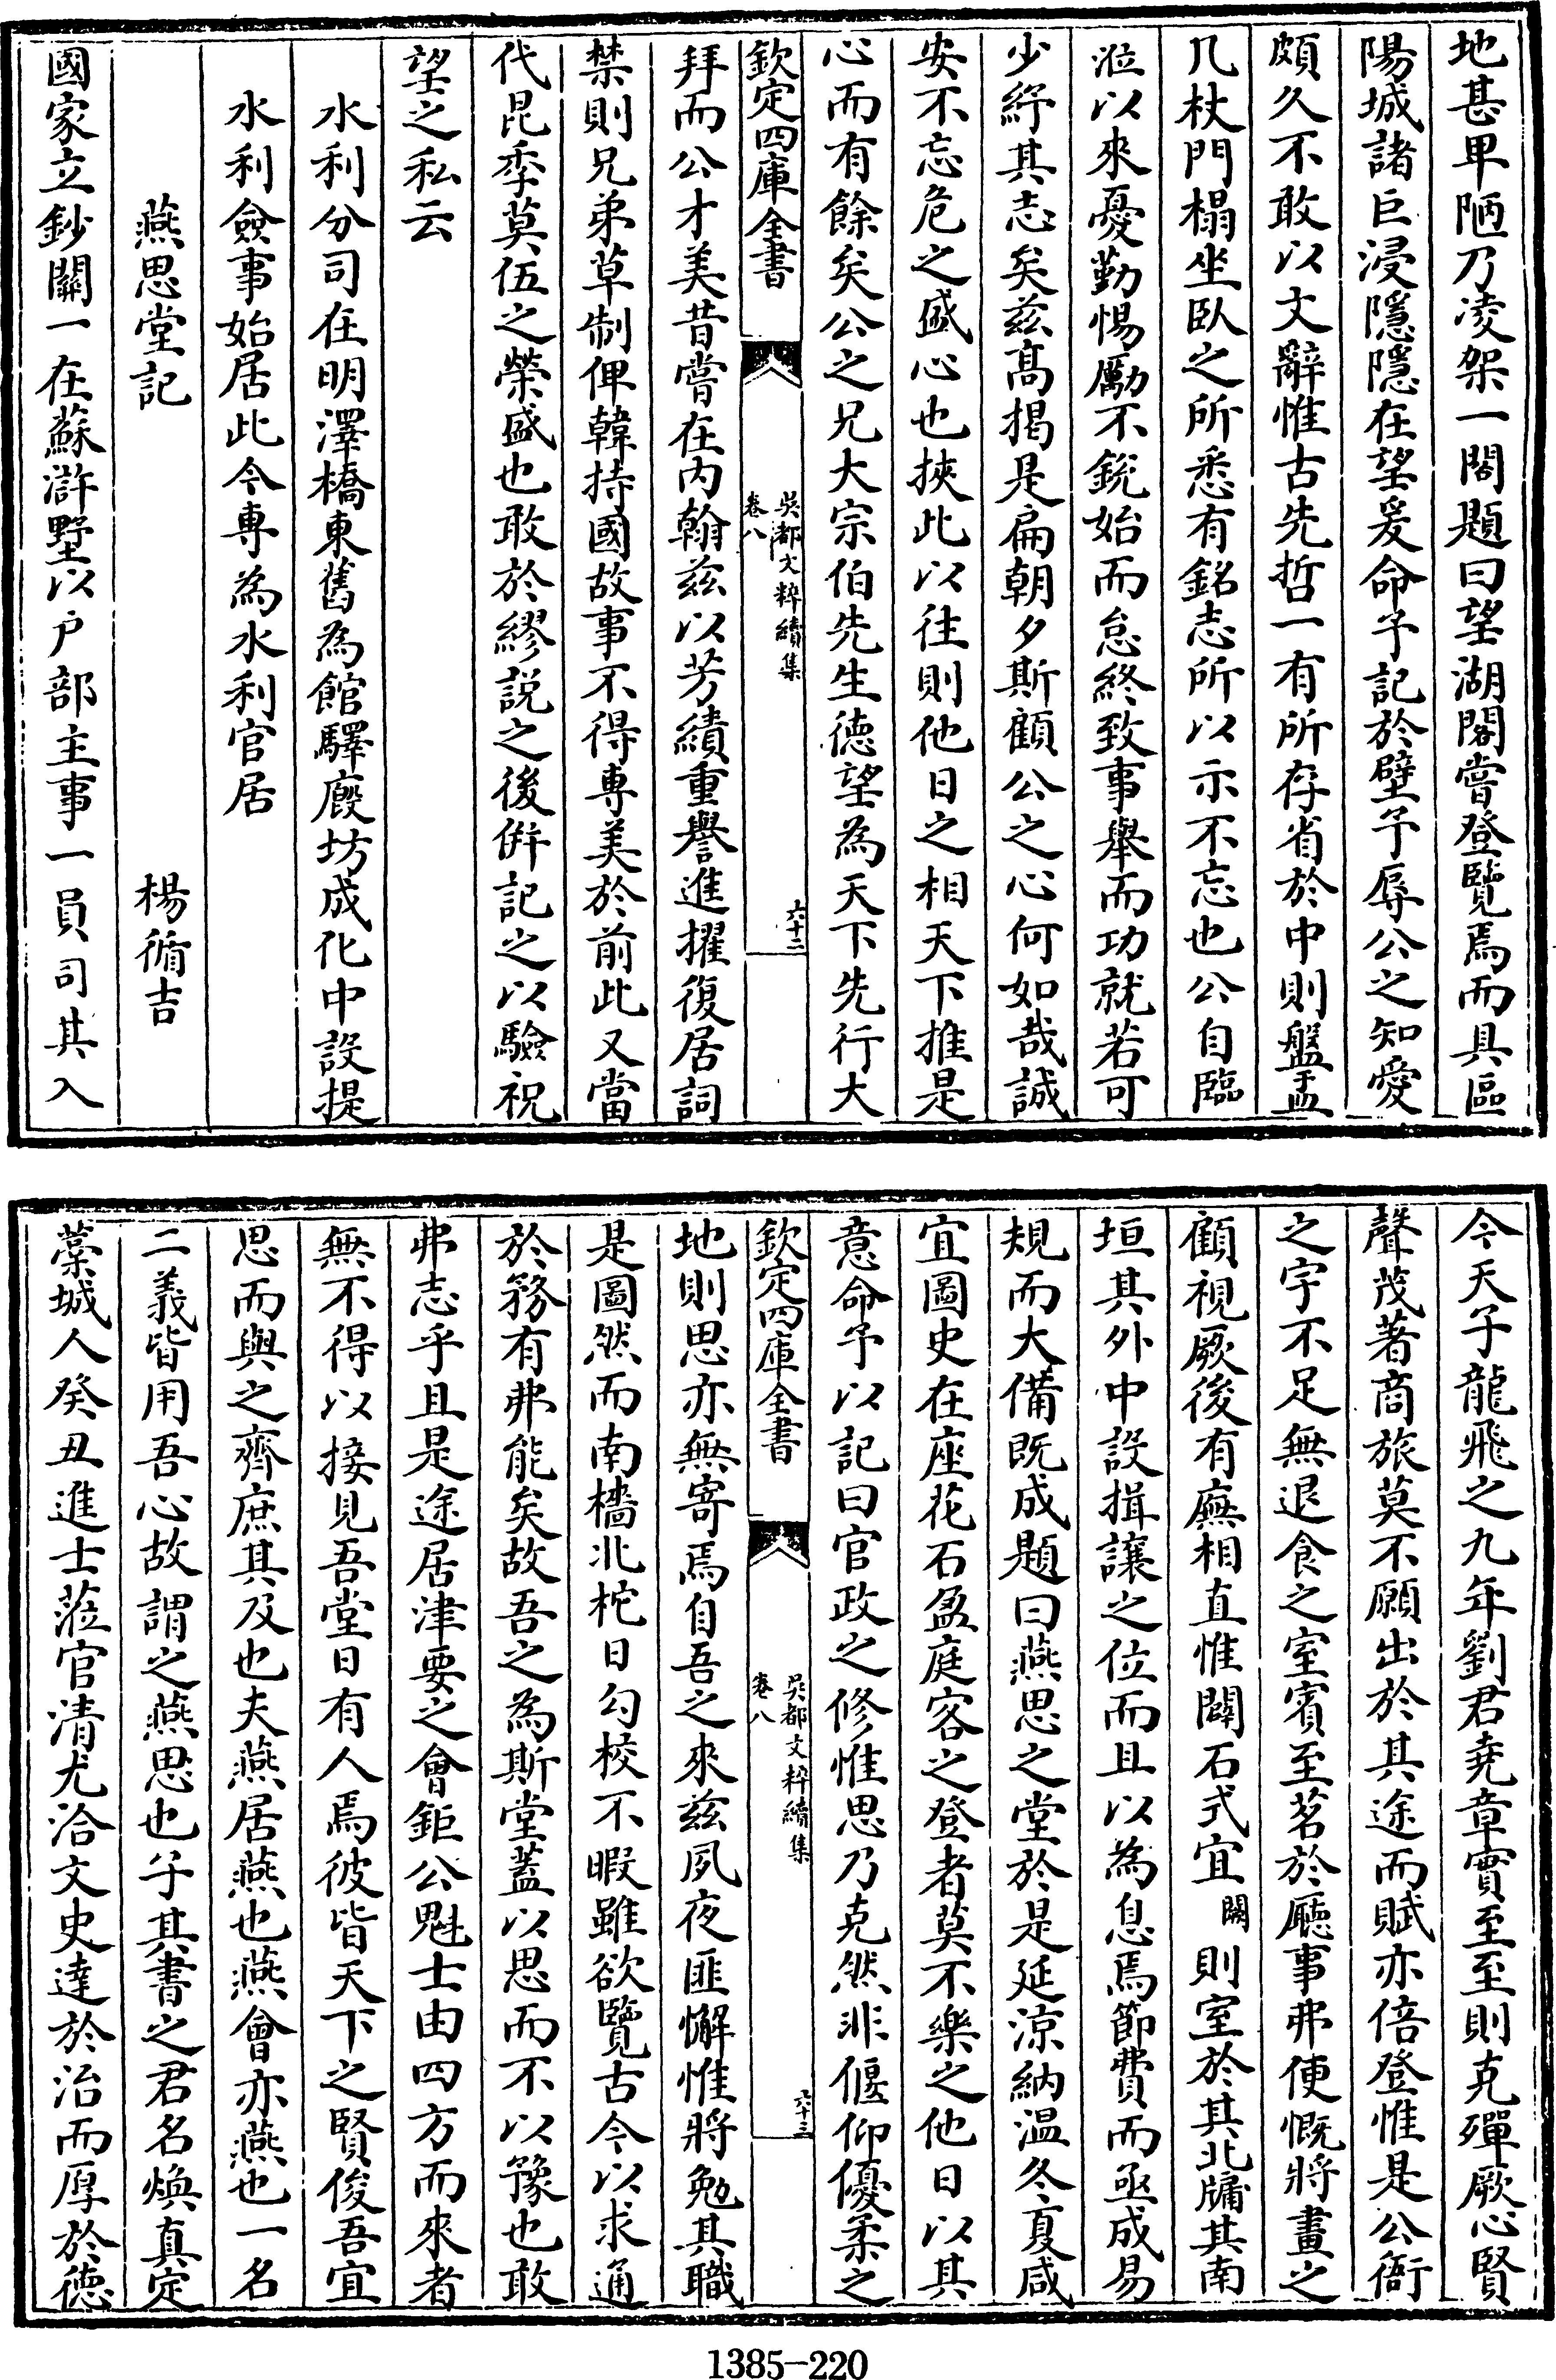 地甚卑陋乃凌架一閣題曰望湖閣嘗登覽焉而具區
陽城諸巨浸隱隱在望爰命予記於壁予辱公之知愛
頗久不敢以文辭惟古先哲一有所存省於中則盤盂
几杖門榻坐臥之所悉有銘志所以示不忘也公自臨
涖以來憂勤惕勵不銳始而怠終致事舉而功就若可
少紓其志矣兹髙揭是扁朝夕斯顧公之心何如哉誠
安不忘危之盛心也挾此以往則他日之相天下推是
心而有餘矣公之兄大宗伯先生徳望為天下先行大
欽定四庫全書
吳都文粹續集
卷八
六十二
拜而公才美昔嘗在内翰兹以芳績重譽進擢復居詞
禁則兄弟草制俾韓持國故事不得專美於前此又當
代昆季莫伍之榮盛也敢於繆説之後併記之以驗祝
望之私云
水利分司在明澤橋東舊為館驛廢坊成化中設提
水利僉事始居此今專為水利官居
燕思堂記
楊循吉
國家立鈔關一在蘇滸墅以户部主事一員司其入
今天子龍飛之九年劉君堯章實至至則克殫厥心賢
聲茂著商旅莫不願出於其途而賦亦倍登惟是公衙
之宇不足無退食之室賓至茗於廳事弗便慨將畫之
顧視厥後有廡相直惟闢石式宜
闕
則室於其北牖其南
垣其外中設揖讓之位而且以為息焉節費而亟成易
規而大備既成題曰燕思之堂於是延涼納温冬夏咸
宜圖史在座花石盈庭客之登者莫不樂之他日以其
意命予以記曰官政之修惟思乃克然非偃仰優柔之
欽定四庫全書
吳都文粹續集
卷八
六十三
地則思亦無寄焉自吾之來兹夙夜匪懈惟將勉其職
是圖然而南檣北柁日勾校不暇雖欲覽古今以求通
於務有弗能矣故吾之為斯堂蓋以思而不以豫也敢
弗志乎且是途居津要之會鉅公魁士由四方而來者
無不得以接見吾堂日有人焉彼皆天下之賢俊吾宜
思而與之齊庶其及也夫燕居燕也燕會亦燕也一名
二義皆用吾心故謂之燕思也予其書之君名煥真定
藁城人癸丑進士蒞官清尤洽文史達於治而厚於徳
1385-220